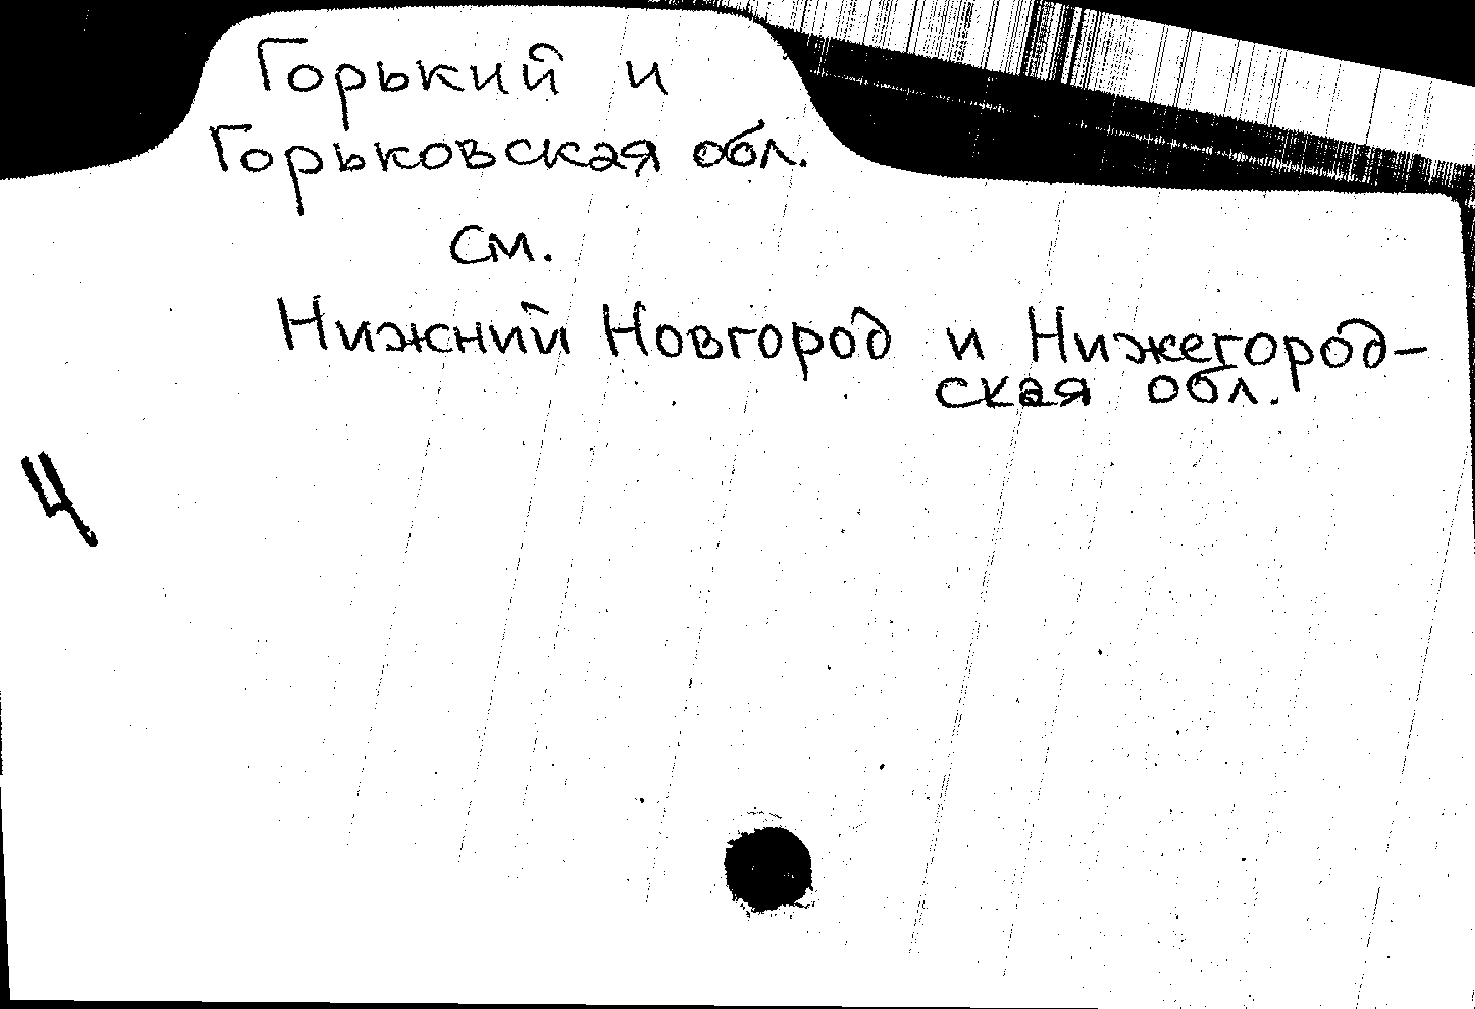 Горький и
Горьковская обл.
см.
Нижний Новгород и Нижегород-
ская обл.
Ч